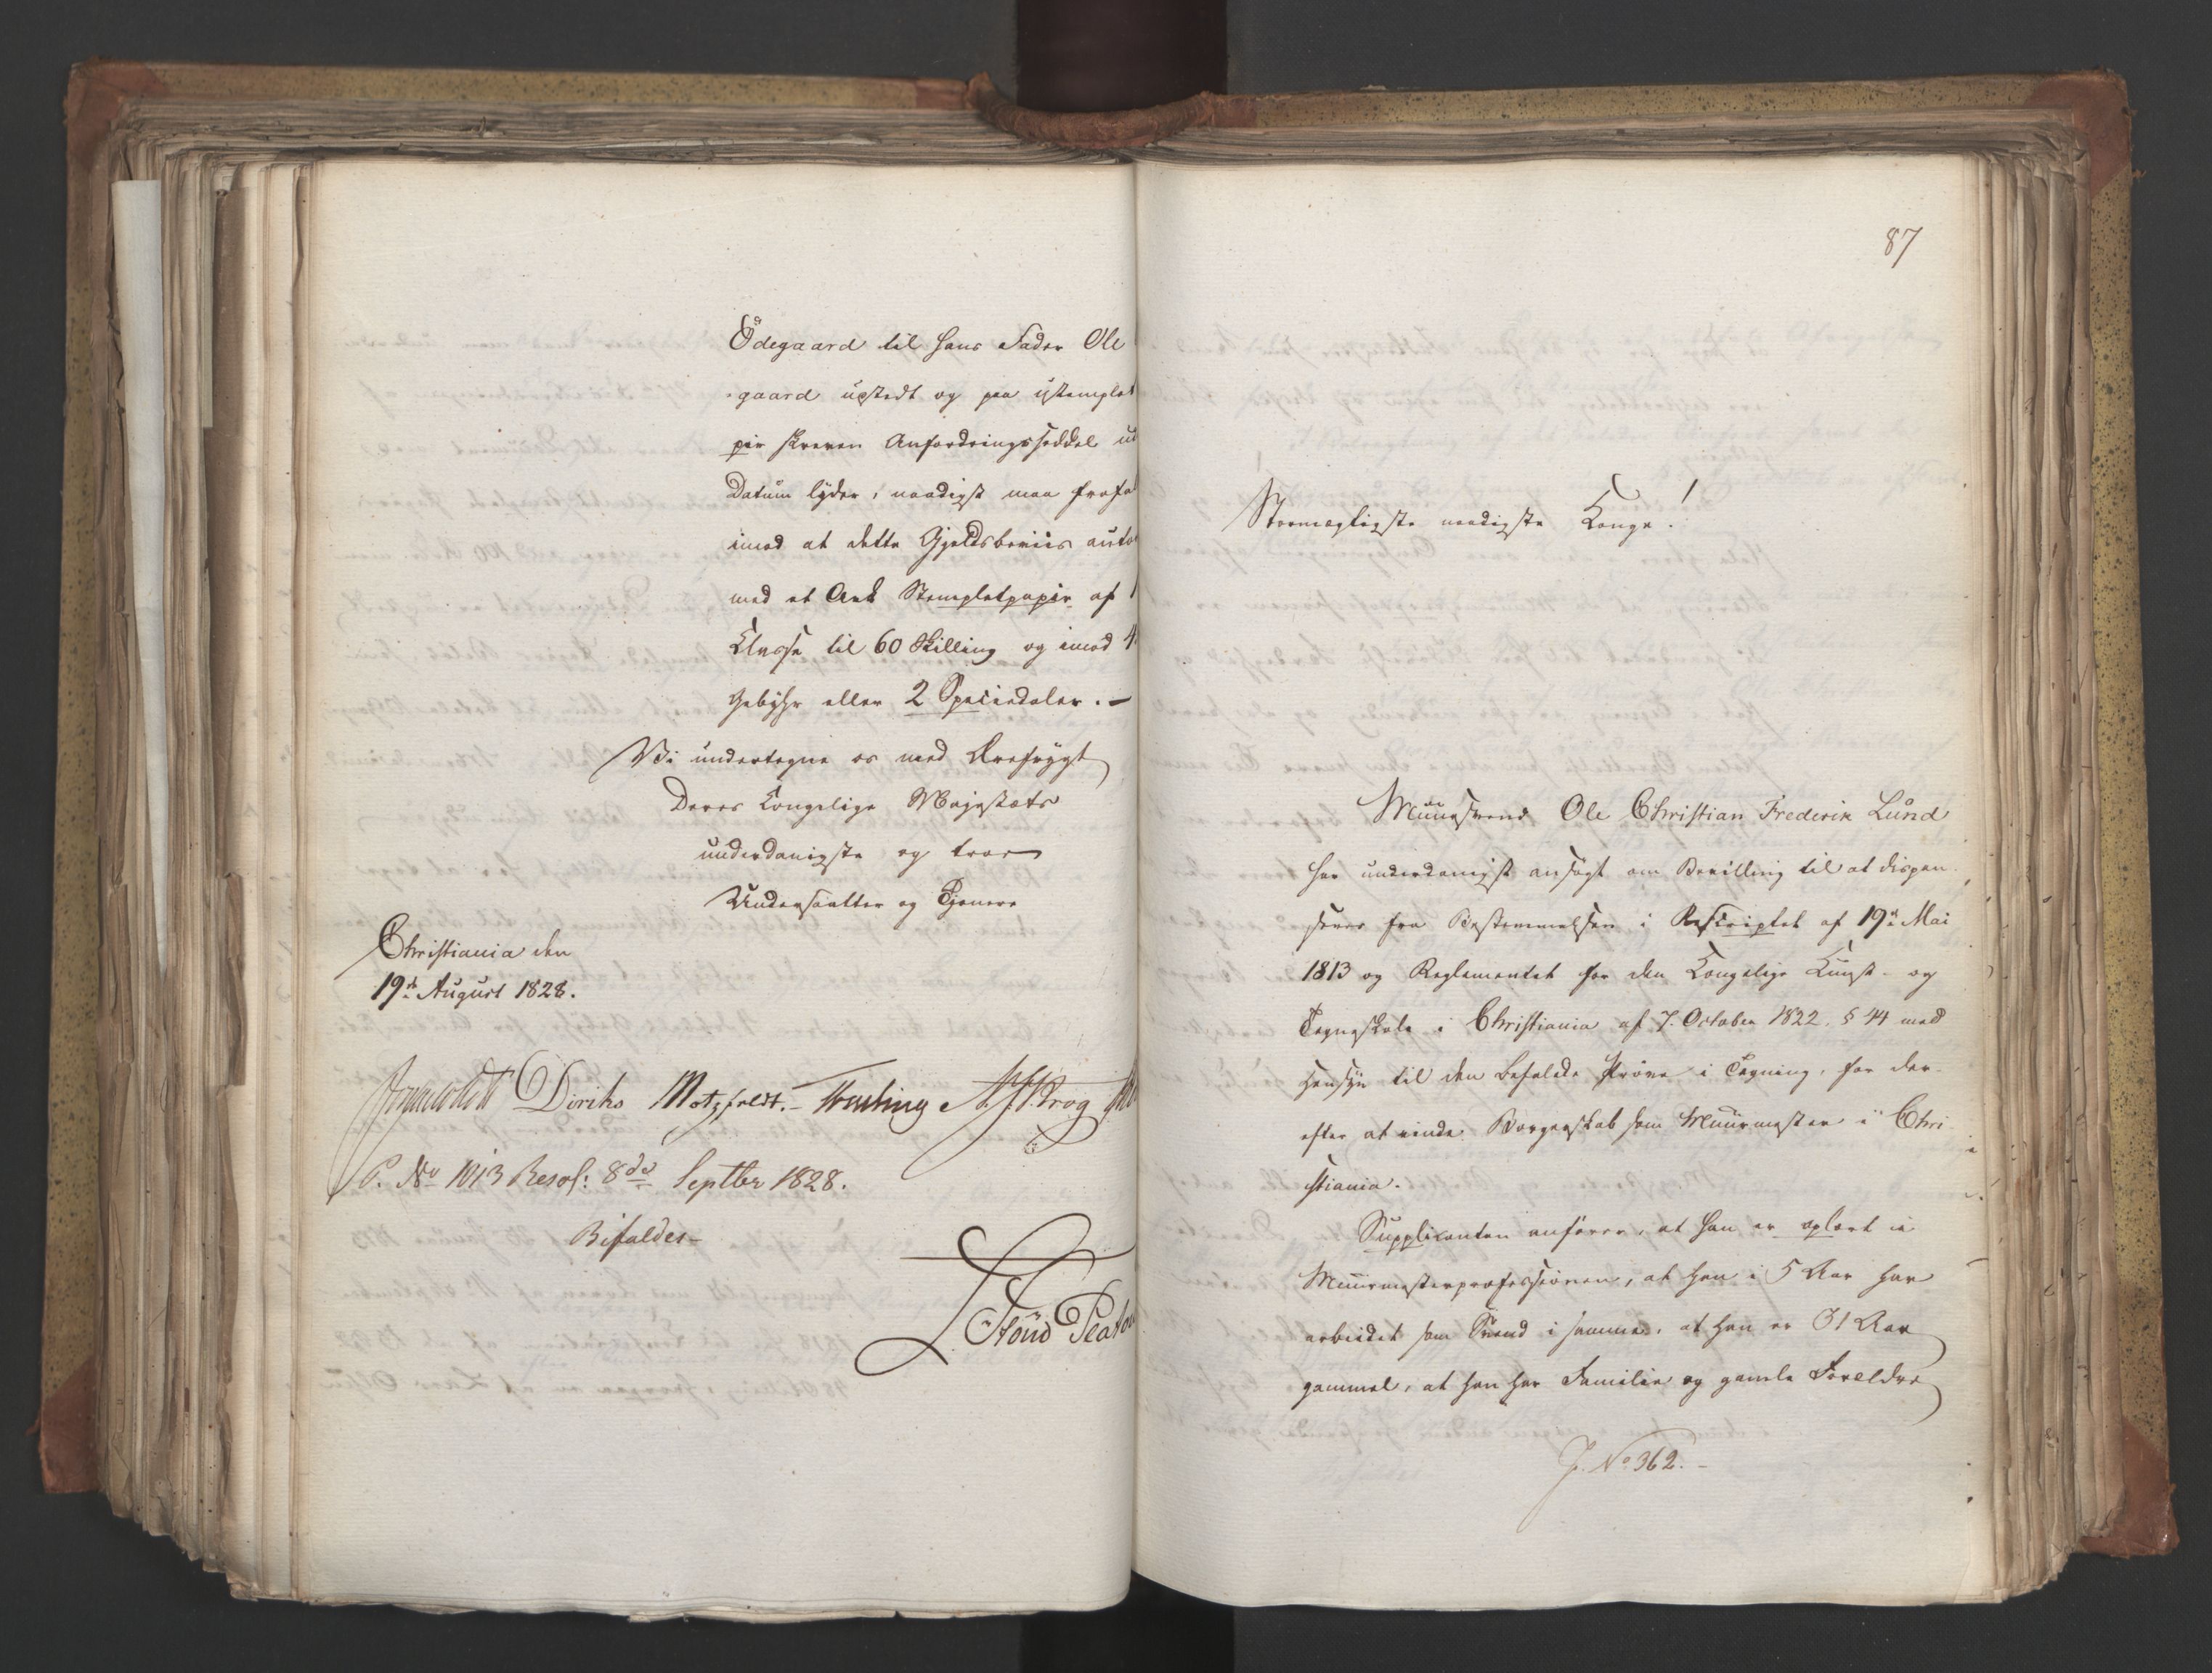 Ödegaard til hans Fader Ole
gaard udstedt og paa ustemplet
pir skreven Anfordringsseddel
Datum lyder, naadigst maa
imod at dette Gjeldsbeviis
med et Ark Stempletpapir af
Classe til 60 Skilling og imod
Gebyhr eller 2 Speciedaler. —
Vi undertegne os med Ærefrygt
Deres Kongelige Majestæts
underdanigste og troe
Undersaatter og Tjenere
Christiania den
19de August 1828.
Diriks Motzfeldt. Treschow Krog
P. No 1013 Resol: 8de Septbr 1828.
Bifaldes
87
Stormægtigste naadigste Konge!
Muursvend Ole Christian Frederik Lund
har underdanigst ansøgt om Bevilling til at dispen-
seres fra Bestemmelsen i Rescriptet af 19de Mai
1813 og Reglementet for den Kongelige Kunst- og
Tegneskole i Christiania af 7. October 1822. § 44 med
Hensyn til den befalede Prøve i Tegning, for der-
efter at vinde Borgerskab som Muurmester i Chri-
stiania.
Supplicanten anfører, at han er oplært i
Muurmesterprofessionen, at han i 5 Aar har
arbeidet som Svend i samme, at han er 31 Aar
gammel, at han har Familie og gamle Forældre
J. No 362. –